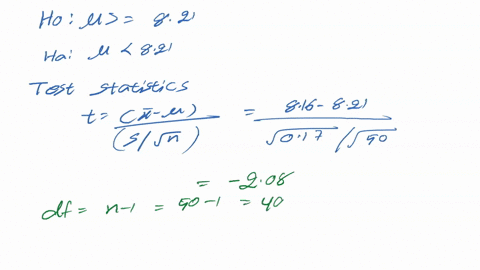 Ho: μ >= 8.21
Ha: μ < 8.21
Test statistics
t = (x̄ - μ) / (s/√n) = 8.16 - 8.21 / √0.17 / √50
= -2.08
df = n-1 = 50-1 = 40